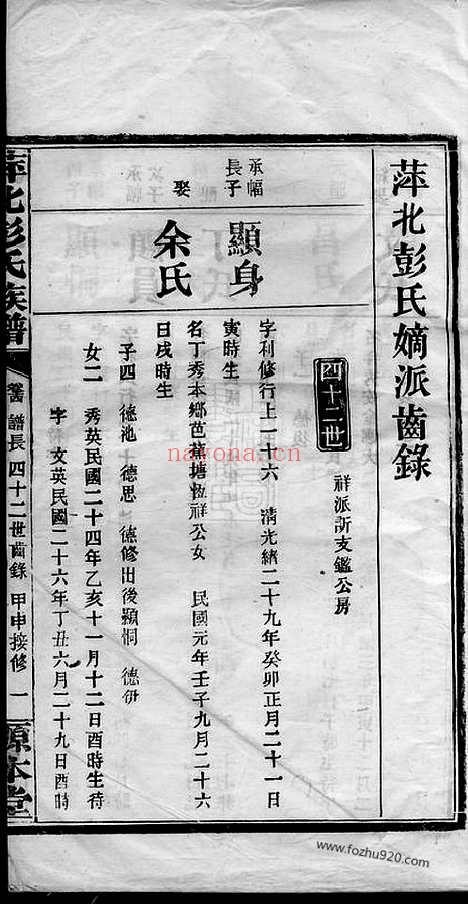 萍北彭氏嫡派齒錄
四十二世
祥派訢支鑑公房
承幅
長子
顯身
字利修行上一十六 清光緒二十九年癸卯正月二十一日
寅時生
娶
余氏
名丁秀本鄉芭蕉塘恆祥公女 民國元年壬子九月二十六
日戌時生
子四 德池 德思 德修出後顯恫 德伊
女二 秀英民國二十四年乙亥十一月十二日酉時生待
字 文英民國二十六年丁丑六月二十九日酉時
萍北彭氏族譜
譜長 四十二世齒錄 甲申接修 一
源本堂
navona.cn
www.fozhu920.com